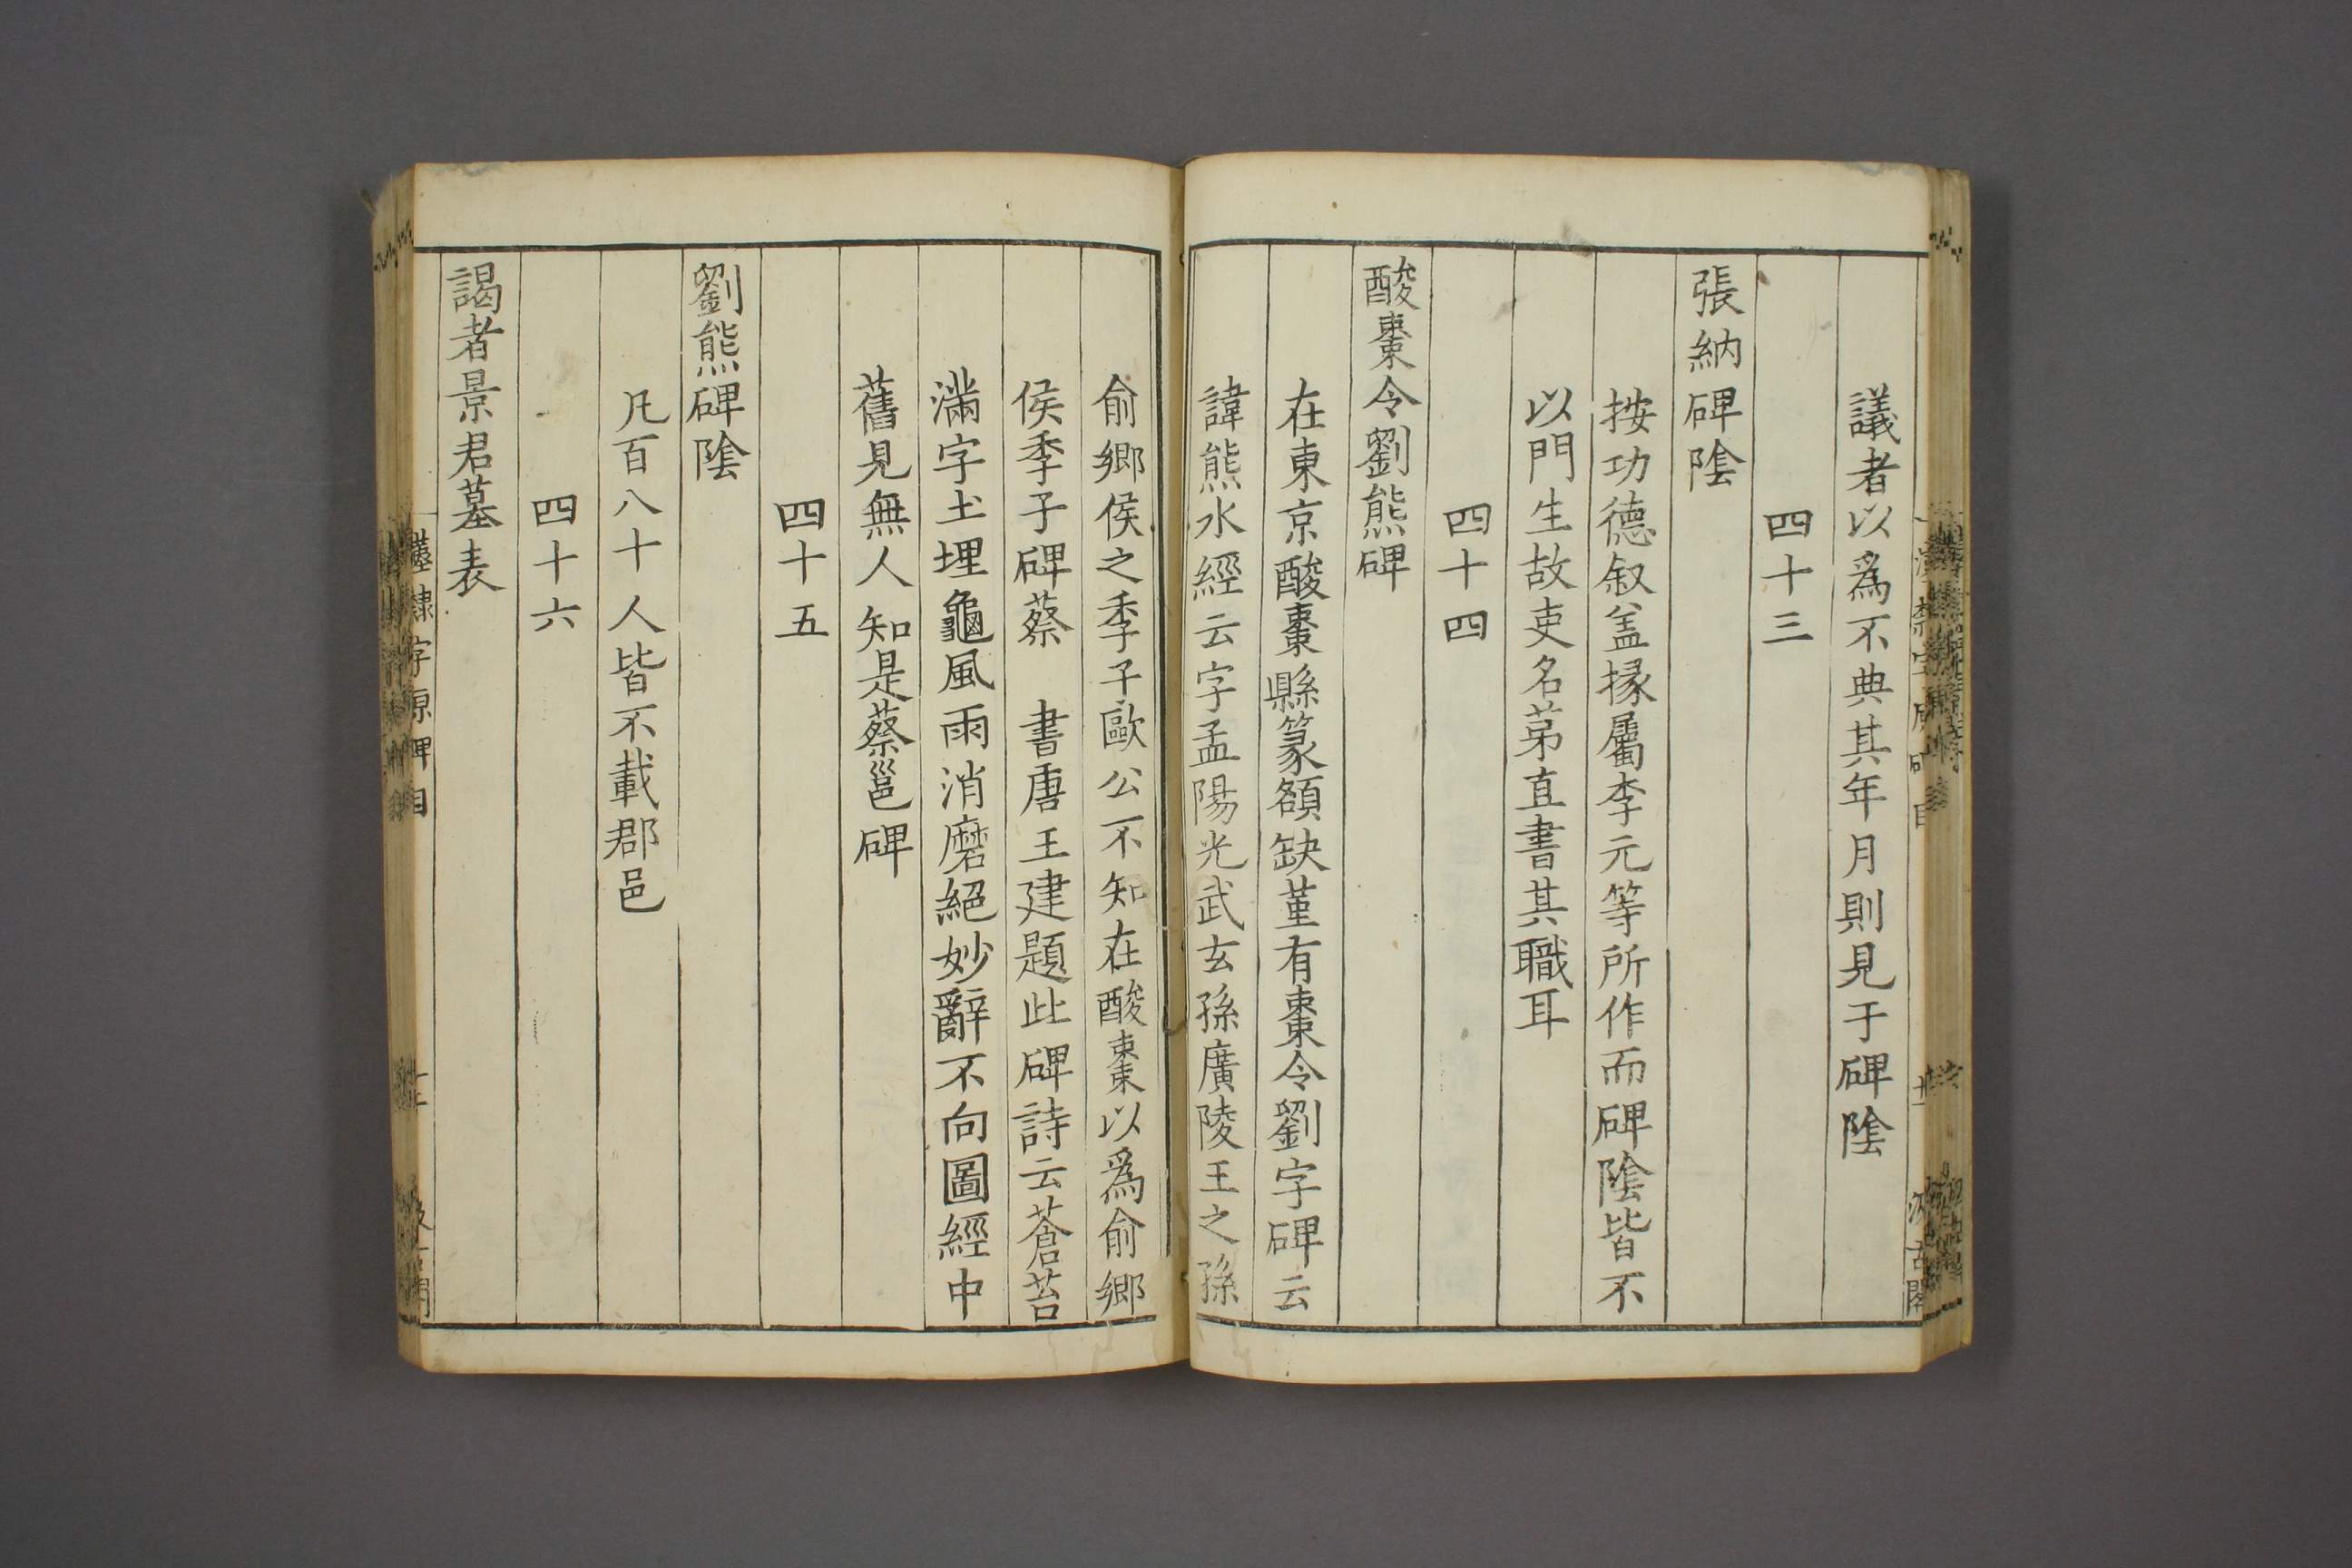 議者以為不典其年月則見于碑陰
四十三
張納碑陰
按功德叙盖掾屬李元等所作而碑陰皆不
以門生故吏名苐直書其職耳
四十四
酸棗令劉熊碑
在東京酸棗縣篆額缺堇有棗令劉字碑云
諱熊水經云字孟陽光武玄孫廣陵王之孫
俞鄉侯之季子歐公不知在酸棗以為俞鄉
侯季子碑蔡　書唐王建題此碑詩云蒼苔
滿字土埋龜風雨消磨絕妙辭不向圖經中
舊見無人知是蔡邕碑
四十五
劉熊碑陰
凡百八十人皆不載郡邑
四十六
謁者景君墓表
隸字原碑目
汲古閣